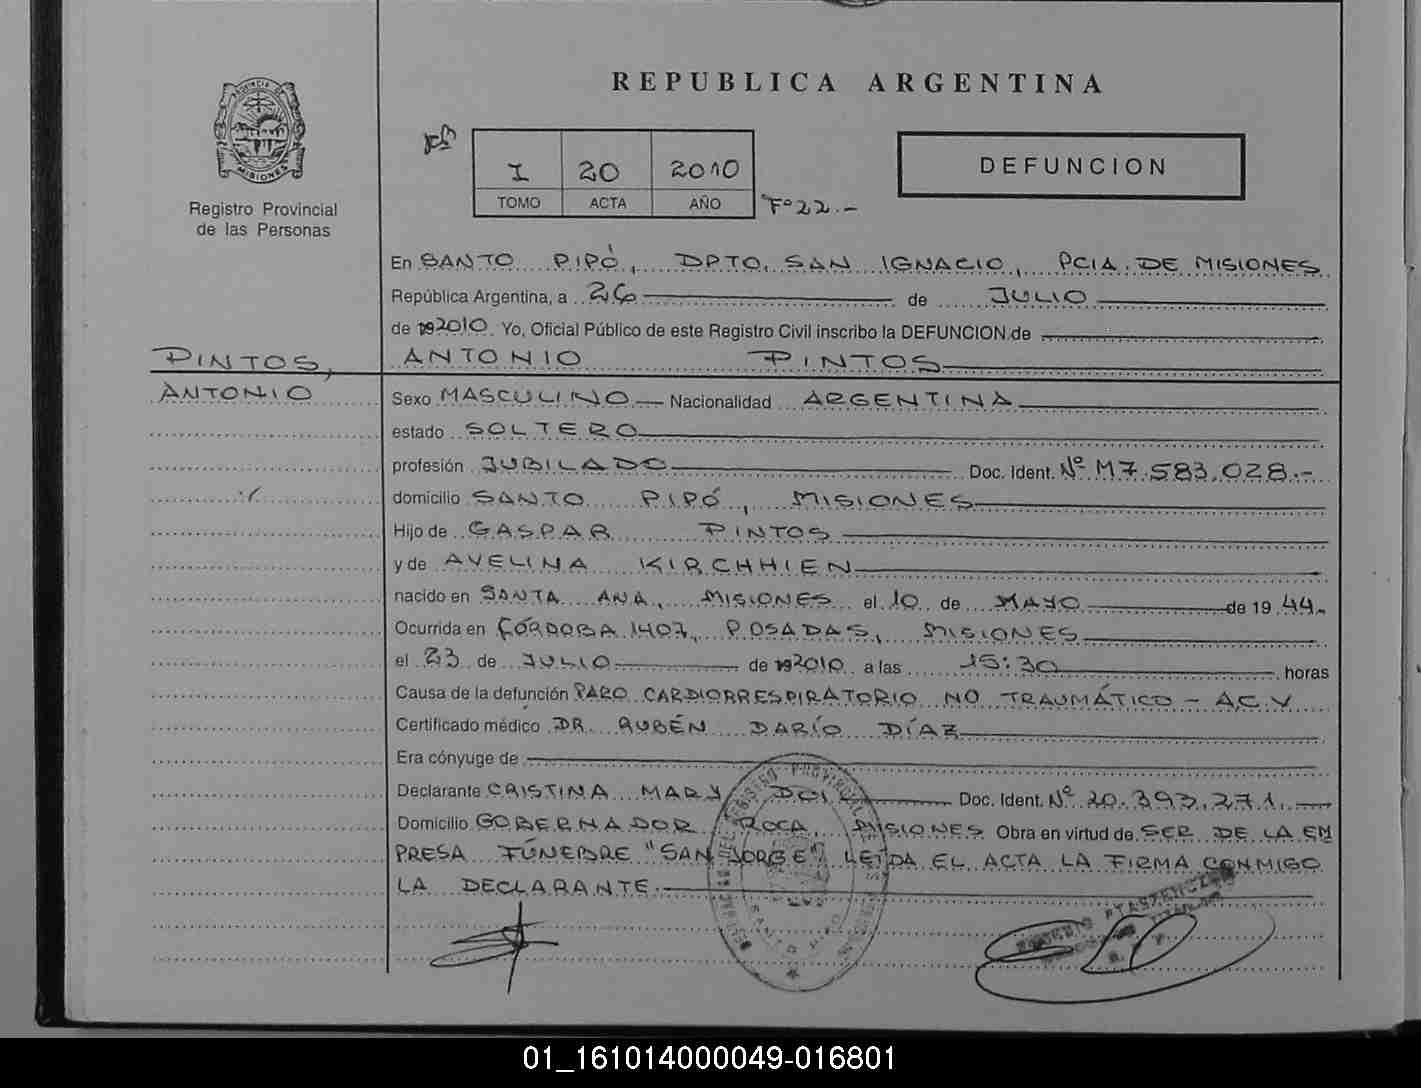 REPUBLICA ARGENTINA
PROVINCIA DE
MISIONES
Registro Provincial
de las Personas
I 20 2010
TOMO ACTA AÑO
Fº 22.-
DEFUNCION
En SANTO PIPÓ, DPTO. SAN IGNACIO, PCIA. DE MISIONES
República Argentina, a 26 de JULIO
de 192010. Yo, Oficial Público de este Registro Civil inscribo la DEFUNCION de
PINTOS, ANTONIO PINTOS
ANTONIO
Sexo MASCULINO Nacionalidad ARGENTINA
estado SOLTERO
profesión JUBILADO Doc. Ident. Nº M7.583.028.-
domicilio SANTO PIPÓ, MISIONES
Hijo de GASPAR PINTOS
y de AVELINA KIRCHHIEN
nacido en SANTA ANA, MISIONES el 10 de MAYO de 19 44.
Ocurrida en CÓRDOBA 1407, POSADAS, MISIONES
el 23 de JULIO de 192010 a las 15:30 horas
Causa de la defunción PARO CARDIORRESPIRATORIO NO TRAUMÁTICO - A.C.V
Certificado médico DR. RUBÉN DARÍO DÍAZ
Era cónyuge de
Declarante CRISTINA MARY Doc. Ident. Nº 20.393.271.
Domicilio GOBERNADOR ROCA, MISIONES Obra en virtud de SER DE LA EM
PRESA FÚNEBRE "SAN JORGE". LEÍDA EL ACTA LA FIRMA CONMIGO
LA DECLARANTE.
SANTO PIPO
01_161014000049-016801